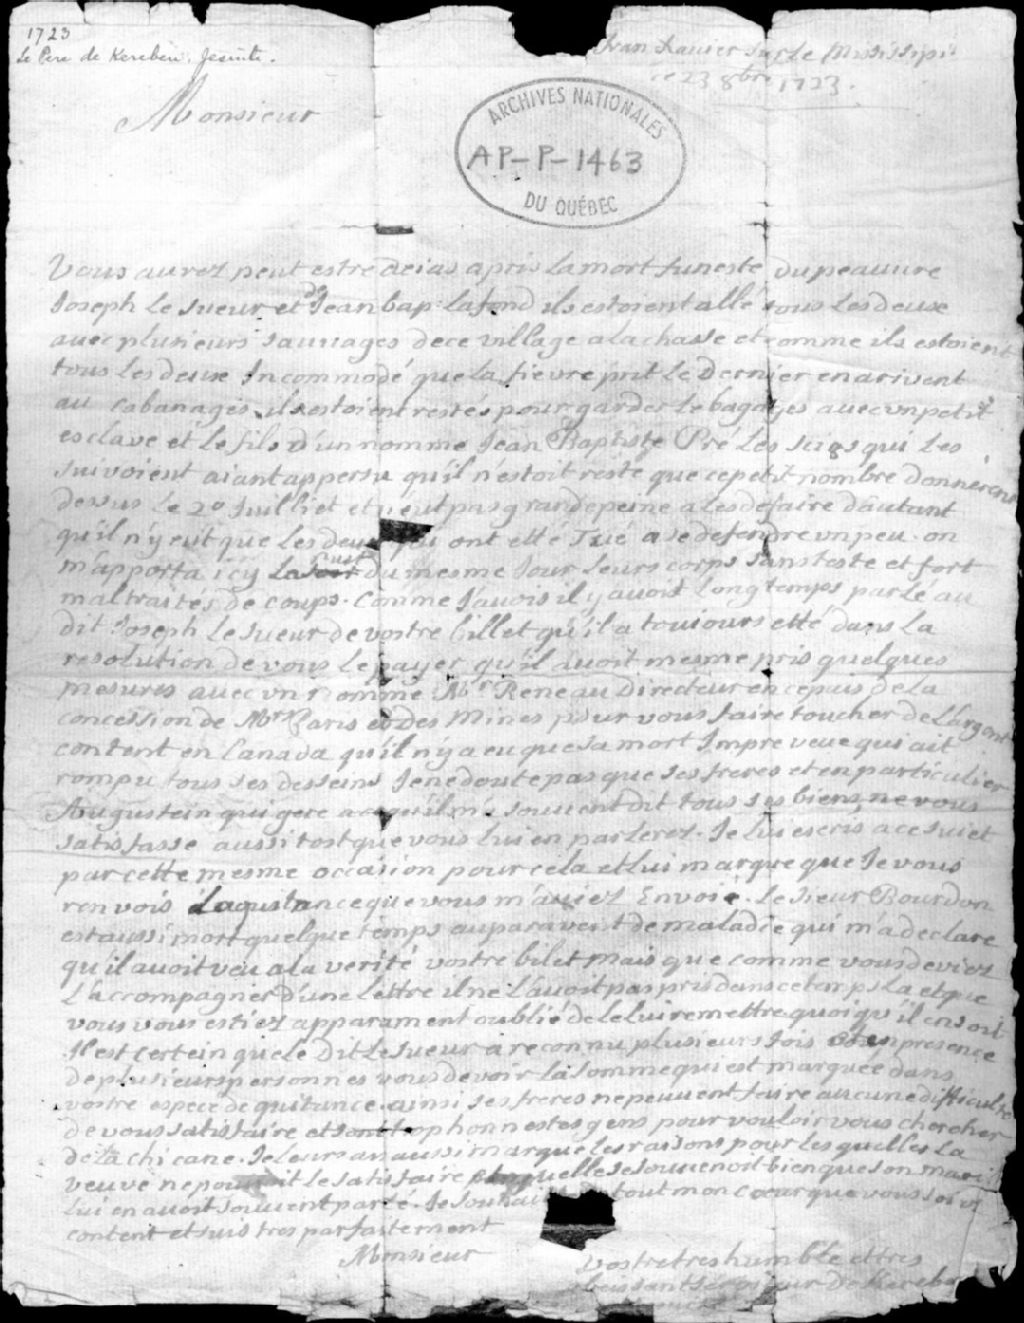 1723
Le Pere de Kereben. Jesuite.
fran Xavier sur le Mississipi
ce 23 8bre 1723.
Monsieur
ARCHIVES NATIONALES
AP-P-1463
DU QUÉBEC
Vous aurez peut estre deias apris la mort funeste du peauure
Joseph le sueur et de Jean bap: lafond ils estoient allé tous les deux
auec plusieurs sauuages de ce village a la chasse et comme ils estoient
tous les deux Incommodé que la fievre prit le Dernier en arivent
au cabanages, ils estoient restés pour garder le bagages auec vn petit
esclave et le fils d'un nomme Jean Baptiste Pré Les qui les
suivoient aiant appersu qu'il n'estoit resté que ce petit nombre donnerent
dessus le 20 Juilliet et n'eut pas grande peine a les defaire dautant
qu'il n'y eut que les deux qui ont etté Tué a se defendre vn peu. on
m'apporta icy du mesme Jour leurs corps sans teste et fort
maltraités de coups. Comme J'avois il y avoit long temps parlé au
dit Joseph le sueur de vostre billet qu'il a touiours etté dans la
resolution de vous le payer qu'il auoit mesme pris quelques
mesures auec vn nomme Mr. Reneau Directeur en cepais de la
concession de Mr Paris et des Mines pour vous faire toucher de l'argent
content en Canada qu'il n'y a eu que sa mort Impreveue qui ait
rompu tous ses desseins Je ne doute pas que ses freres et en particulier
Augustein qui gere a ce qu'il m'a souuent dit tous ses biens ne vous
satisfasse aussi tost que vous lui en parlerez. Je lui escris a ce suiet
par cette mesme occasion pour cela et lui marque que Je vous
renvois la quitance que vous m'auiez Envoié. le sieur Bourdon
est aussi mort quelque temps auparavent de maladie qui m'a declare
qu'il auoit veu a la verité vostre bilet mais que comme vous deviez
l'accompagner d'une lettre il ne l'auoit pas pris dans ce temps la et que
vous vous estiez apparament oublié de le lui remettre quoi qu'il en soit
Il est certein que le Dit Le sueur a reconnu plusieurs fois en presence
de plusieurs personnes vous devoir la somme qui est marquée dans
vostre espece de quitance. ainsi ses freres ne peuuent faire aucune difficulté
de vous satisfaire et sont trop honnestes gens pour vouloir vous chercher
de la chicane. Je leurs an aussi marque les raisons pour les quelles la
veuve ne pouroit le satisfaire quelle se souuenoit bien que son mari
lui en auoit souuent parlé. Je souhaite de tout mon coeur que vous soiez
content et suis tres parfaitement
Monsieur
Vostre tres humble et tres
obeissant serviteur De Kereben